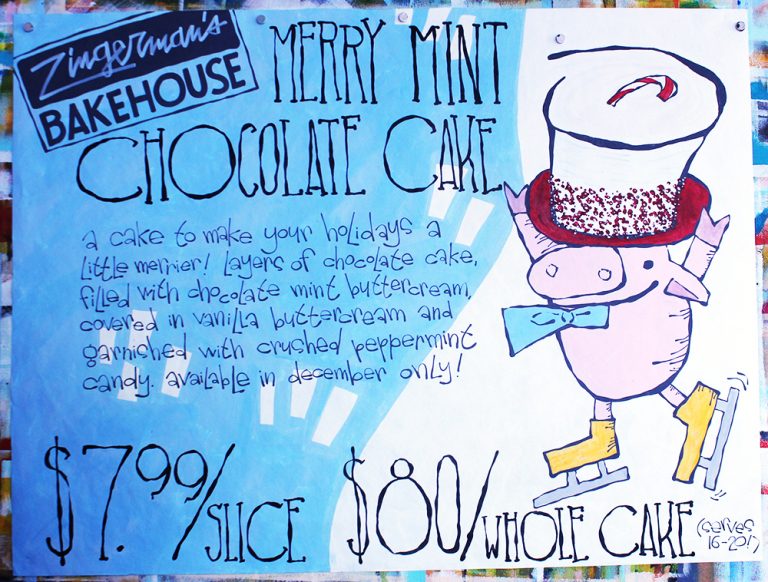 Zingerman's
BAKEHOUSE
MERRY MINT
CHOCOLATE CAKE
a cake to make your holidays a
little merrier! layers of chocolate cake,
filled with chocolate mint buttercream,
covered in vanilla buttercream and
garnished with crushed peppermint
candy. available in december only!
$7.99/SLICE $80/WHOLE CAKE (serves
16-20!)